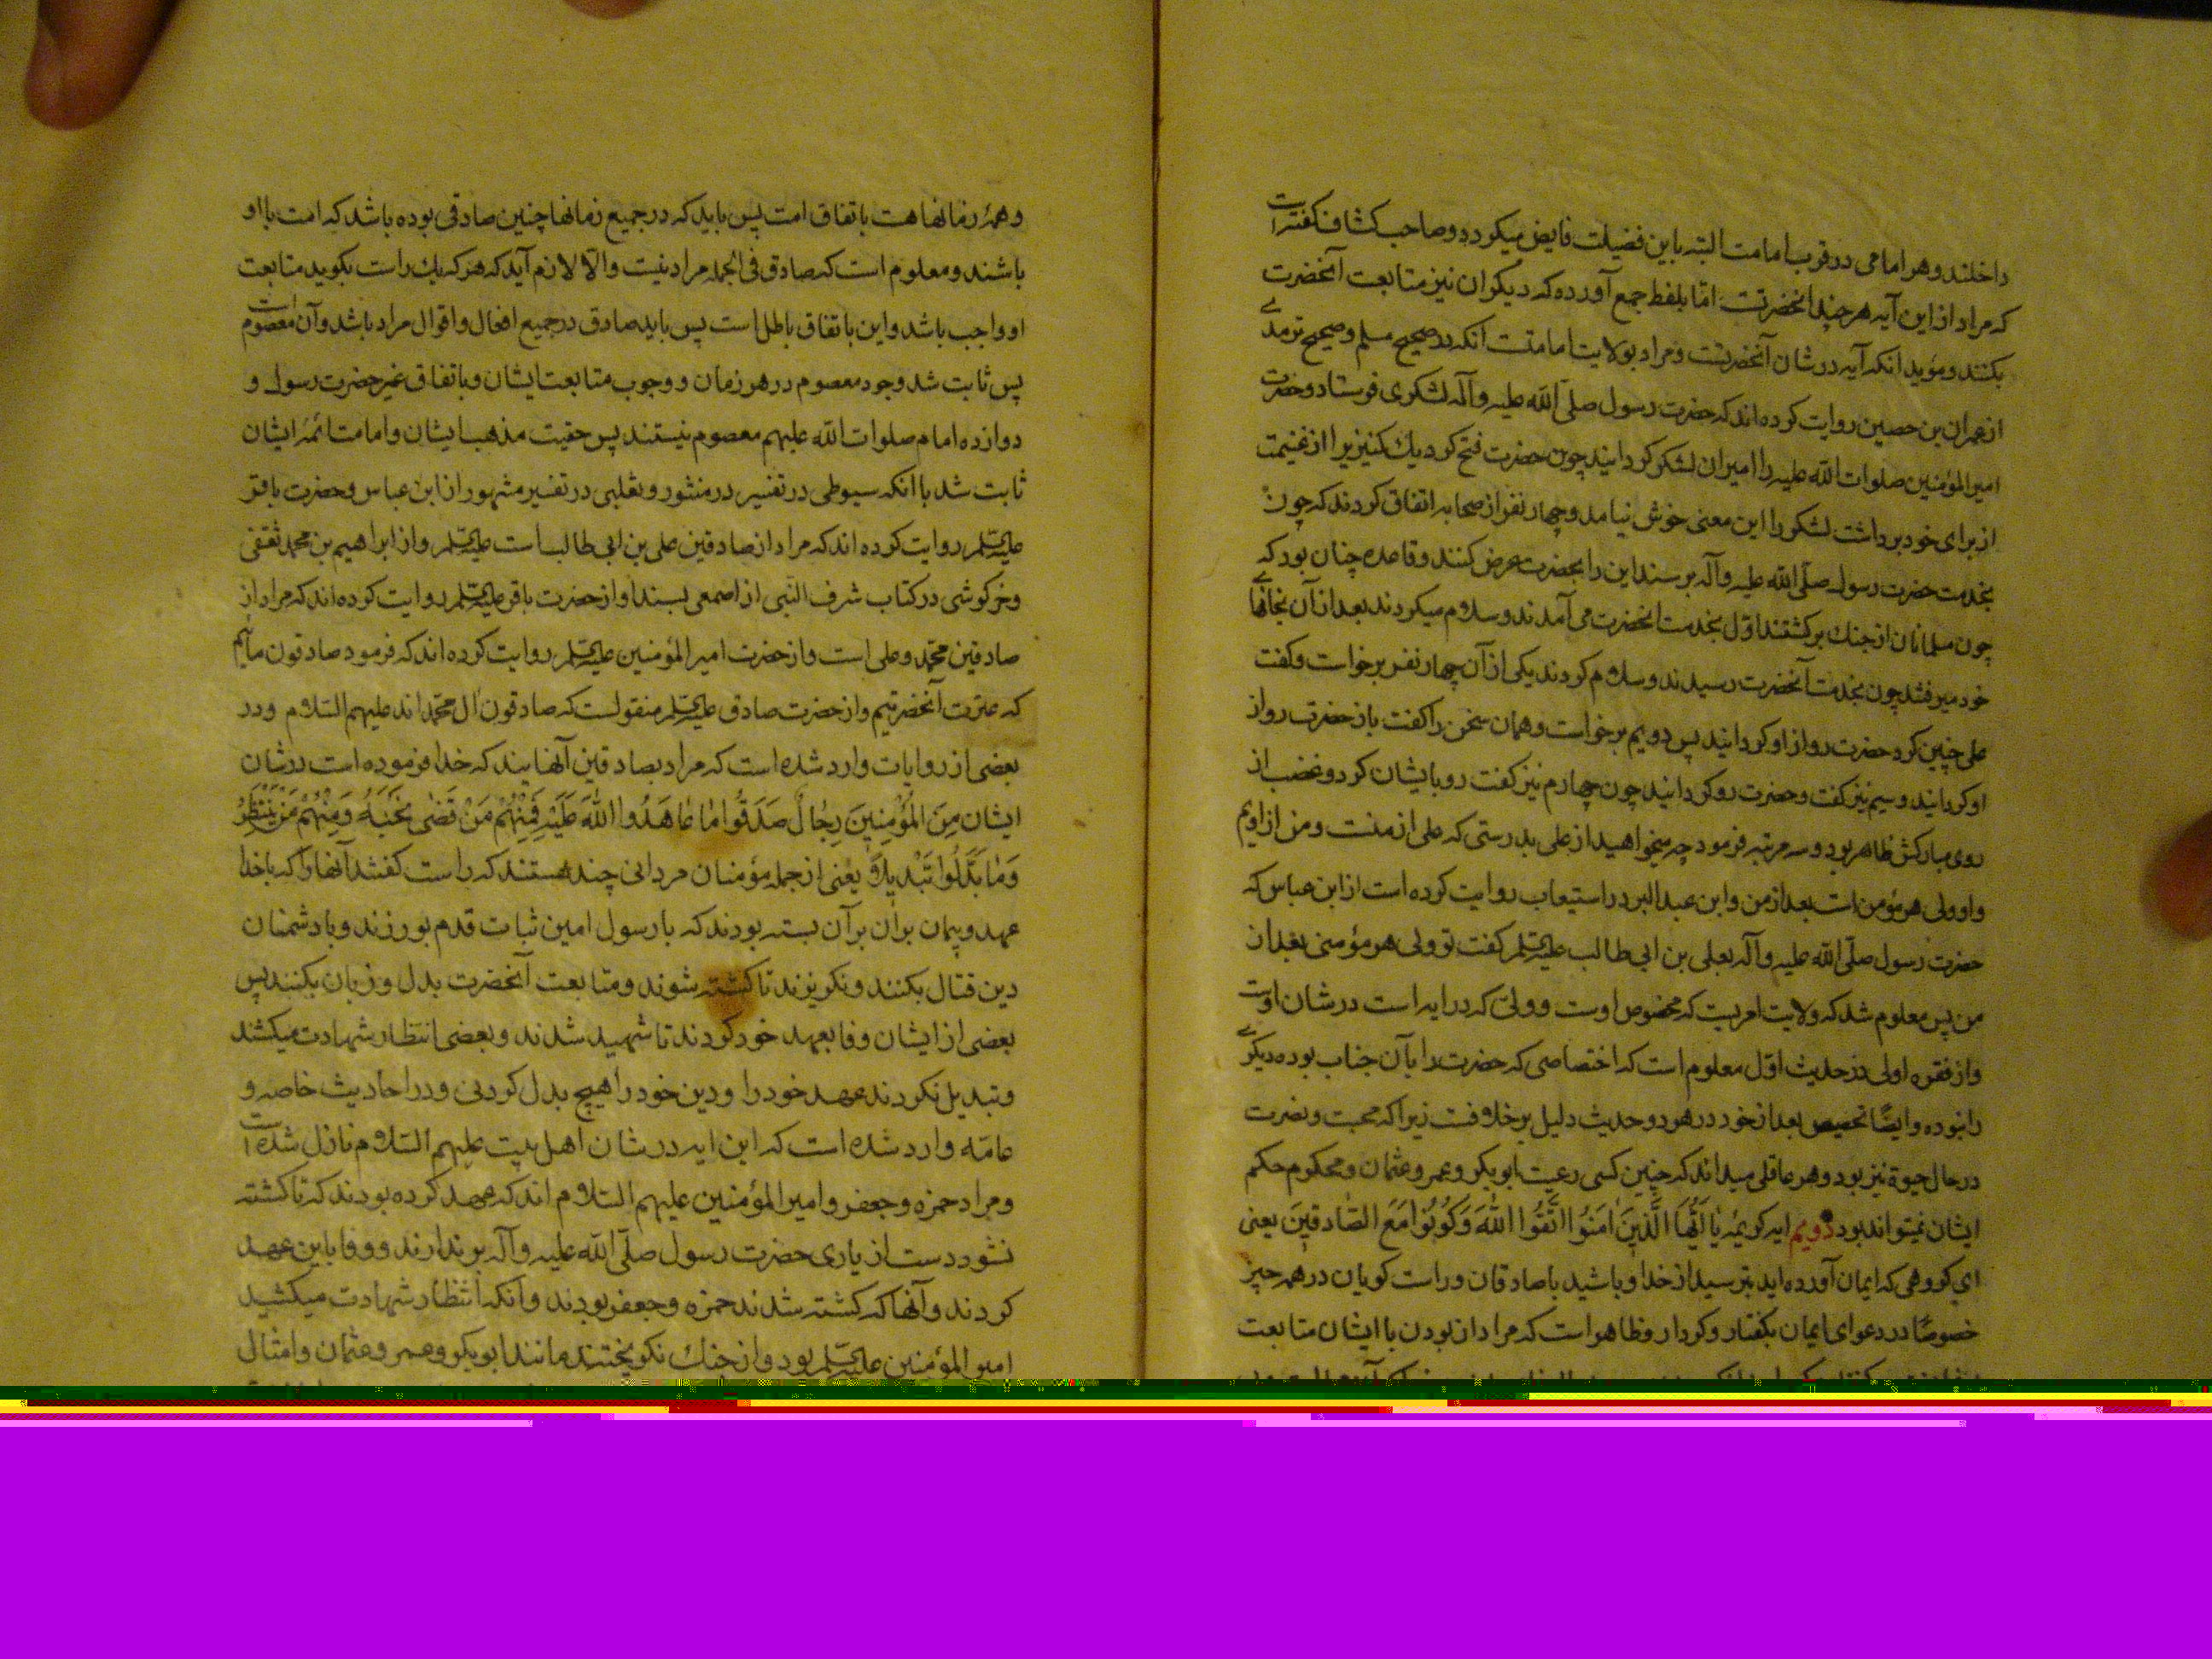 داخلند و هر امامی در قرب امامت البته باین فضیلت فایض میگردد و صاحب کشاف گفته است
که مراد از این آیه هر چند آنحضرتست امّا بلفظ جمع آورده که دیگران نیز متابعت آنحضرت
بکنند و مؤید آنکه آیه در شان آنحضرتست و مراد بولایت امامتست آنکه در صحیح مسلم و صحیح ترمدی
از عمران بن حصین روایت کرده‌اند که حضرت رسول صلّی الله علیه و آله لشکری فرستاد و حضرت
امیر المؤمنین صلوات الله علیه را امیر ان لشکر گردانید چون حضرت فتح کرد یك کنیزیرا از غنیمت
از برای خود برداشت لشکر را این معنی خوش نیامد و چهار نفر از صحابه اتفاق کردند که چون
بخدمت حضرت رسول صلّی الله علیه و آله برسند این را بحضرت عرض کنند و قاعده چنان بود که
چون مسلمانان از جنك برکشتند اوّل بخدمت آنحضرت می آمدند و سلام میکردند بعد از آن بخانهای
خود میرفتند چون بخدمت آنحضرت رسیدند و سلام کردند یکی از آن چهار نفر برخواست و گفت
علی چنین کرد حضرت رو از او گردانید پس دویم برخواست و همان سخن را گفت باز حضرت رو از
او گردانید و سیم نیز گفت و حضرت رو گردانید چون چهارم نیز گفت رو بایشان کرد و غضب از
روی مبارکش ظاهر بود و سه مرتبه فرمود چه میخواهید از علی بدرستی که علی از منست و من از اویم
و او ولی هر مؤمن است بعد از من و ابن عبد البر در استیعاب روایت کرده است از ابن عباس که
حضرت رسول صلّی الله علیه و آله بعلی بن ابی طالب علیه السلم گفت تو ولی هر مؤمنی بعد از
من پس معلوم شد که ولایت امریست که مخصوص اوست و ولیی که در ایه است در شان اوست
و از فقره اولی در حدیث اوّل معلوم است که اختصاصی که حضرت را بآن جناب بوده دیگری
را نبوده و ایضًا تخصیص بعد از خود در هر دو حدیث دلیل بر خلافست زیرا که محبت و نصرت
در حال حیوة نیز بود و هر عاقلی میداند که چنین کسی رعیت ابوبکر و عمر و عثمان و محکوم حکم
ایشان نمیتواند بود دویم ایه کریمه یٰا اَیُّهَا الَّذینَ اٰمَنُوا اتَّقُوا اللّٰهَ وَکُونُوا مَعَ الصّٰادِقینَ یعنی
ای گروهی که ایمان آورده‌اید بترسید از خدا و باشید با صادقان و راست گویان در همه چیز
خصوصًا در دعوای ایمان بگفتار و کردار و ظاهر است که مراد از بودن با ایشان متابعت
و همهٔ زمانها هست باتفاق امت پس باید که در جمیع زمانها چنین صادقی بوده باشد که امت با او
باشند و معلوم است که صادق فی الجمله مراد نیست و الّا لازم آید که هر که یك راست بگوید متابعت
او واجب باشد و این باتفاق باطل است پس باید صادق در جمیع افعال و اقوال مراد باشد و آن معصوم است
پس ثابت شد وجود معصوم در هر زمان و وجوب متابعت ایشان و باتفاق غیر حضرت رسول و
دوازده امام صلوات الله علیهم معصوم نیستند پس حقیت مذهب ایشان و امامت ائمهٔ ایشان
ثابت شد با آنکه سیوطی در تفسیر در منثور و ثعلبی در تفسیر مشهور از ابن عباس و حضرت باقر
علیه السلم روایت کرده‌اند که مراد از صادقین علی بن ابی طالب است علیه السلم و از ابراهیم بن محمد ثقفی
و خرگوشی در کتاب شرف النّبی از اصمعی بسند او از حضرت باقر علیه السلم روایت کرده‌اند که مراد از
صادقین محمّد و علی است و از حضرت امیر المؤمنین علیه السلم روایت کرده‌اند که فرمود صادقون مائیم
که عترت آنحضرتیم و از حضرت صادق علیه السلم منقولست که صادقون ال محمّد‌اند علیهم السّلام و در
بعضی از روایات وارد شده است که مراد بصادقین آنهایند که خدا فرموده است در شان
ایشان مِنَ المُؤمِنِینَ رِجٰالٌ صَدَقُوا مٰا عٰاهَدُوا اللّٰهَ عَلَیْهِ فَمِنْهُمْ مَنْ قَضٰی نَحْبَهُ وَمِنْهُمْ مَنْ یَنْتَظِرُ
وَمٰا بَدَّلُوا تَبْدیلًا یعنی از جمله مؤمنان مردانی چند هستند که راست گفتند آنها را که با خدا
عهد و پیمان بر آن بر آن بسته بودند که با رسول امین ثبات قدم بورزند و با دشمنان
دین قتال بکنند و نگریزند تا کشته شوند و متابعت آنحضرت بدل و زبان بکنند پس
بعضی از ایشان وفا بعهد خود کردند تا شهید شدند و بعضی انتظار شهادت میکشند
و تبدیل نکردند عهد خود را و دین خود را هیچ بدل کردنی و در احادیث خاصه و
عامّه وارد شده است که این ایه در شان اهل بیت علیهم السّلام نازل شده است
و مراد حمزه و جعفر و امیر المؤمنین علیهم السّلام اند که عهد کرده بودند که تا کشته
نشود دست از یاری حضرت رسول صلّی الله علیه و آله بر ندارند و وفا باین عهد
کردند و آنها که کشته شدند حمزه و جعفر بودند و آنکه انتظار شهادت میکشید
امیر المؤمنین علیه السلم بود و از جنك نگریختند مانند ابوبکر و عمر و عثمان و امثال